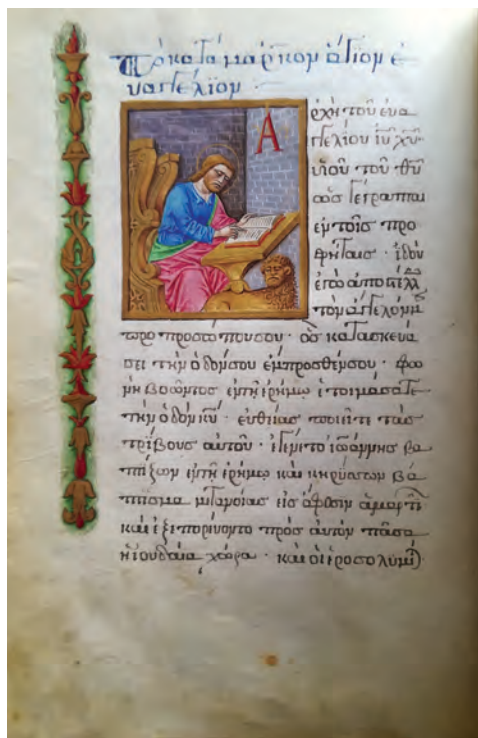 Τὸ κατὰ μάρκον ἅγιον ἐ
υαγγέλϊον ·
Αρχὴ τοῦ ευα
γγελίου ιῦ χῦ
υἱοῦ τοῦ θῦ
ὡς γέγραπται
ἐν τοῖς προ
φήταις · ἰδοὺ
ἐγὼ ἀποστέλλω
τὸν ἄγγελόν μου
προ προσώπου σου · ὃς κατασκευά
σει τὴν ὁδόν σου ἔμπροσθέν σου · φω
νὴ βοῶντος ἐν τῆ ἐρήμω ἑτοιμάσατε
τὴν ὁδὸν κῦ · εὐθείας ποιεῖτε τὰς
τρίβους αὐτοῦ · ἐγένετο ἰωάννης βα
πτίζων ἐν τῆ ἐρήμω καὶ κηρύσσων βά
πτισμα μετανοίας εἰς ἄφεσιν ἁμαρτι
καὶ ἐξεπορεύοντο πρὸς αὐτὸν πᾶσα
ἡ ἰουδαία χώρα · καὶ οἱ ἱεροσολυμῖ